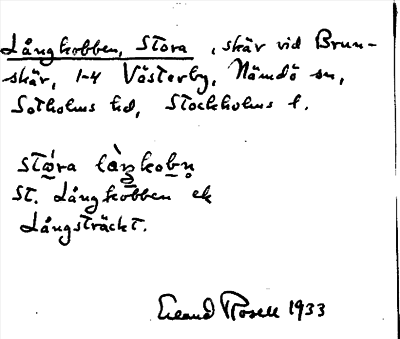 Långkobben, Stora, skär vid Brun-
skär, 1-4 Västerby, Nämdö sn,
Sotholms hd, Stockholms l.
stɷ́ra låŋkobn̥
St. Långkobben ek
Långsträckt.
Erland Rosell 1933